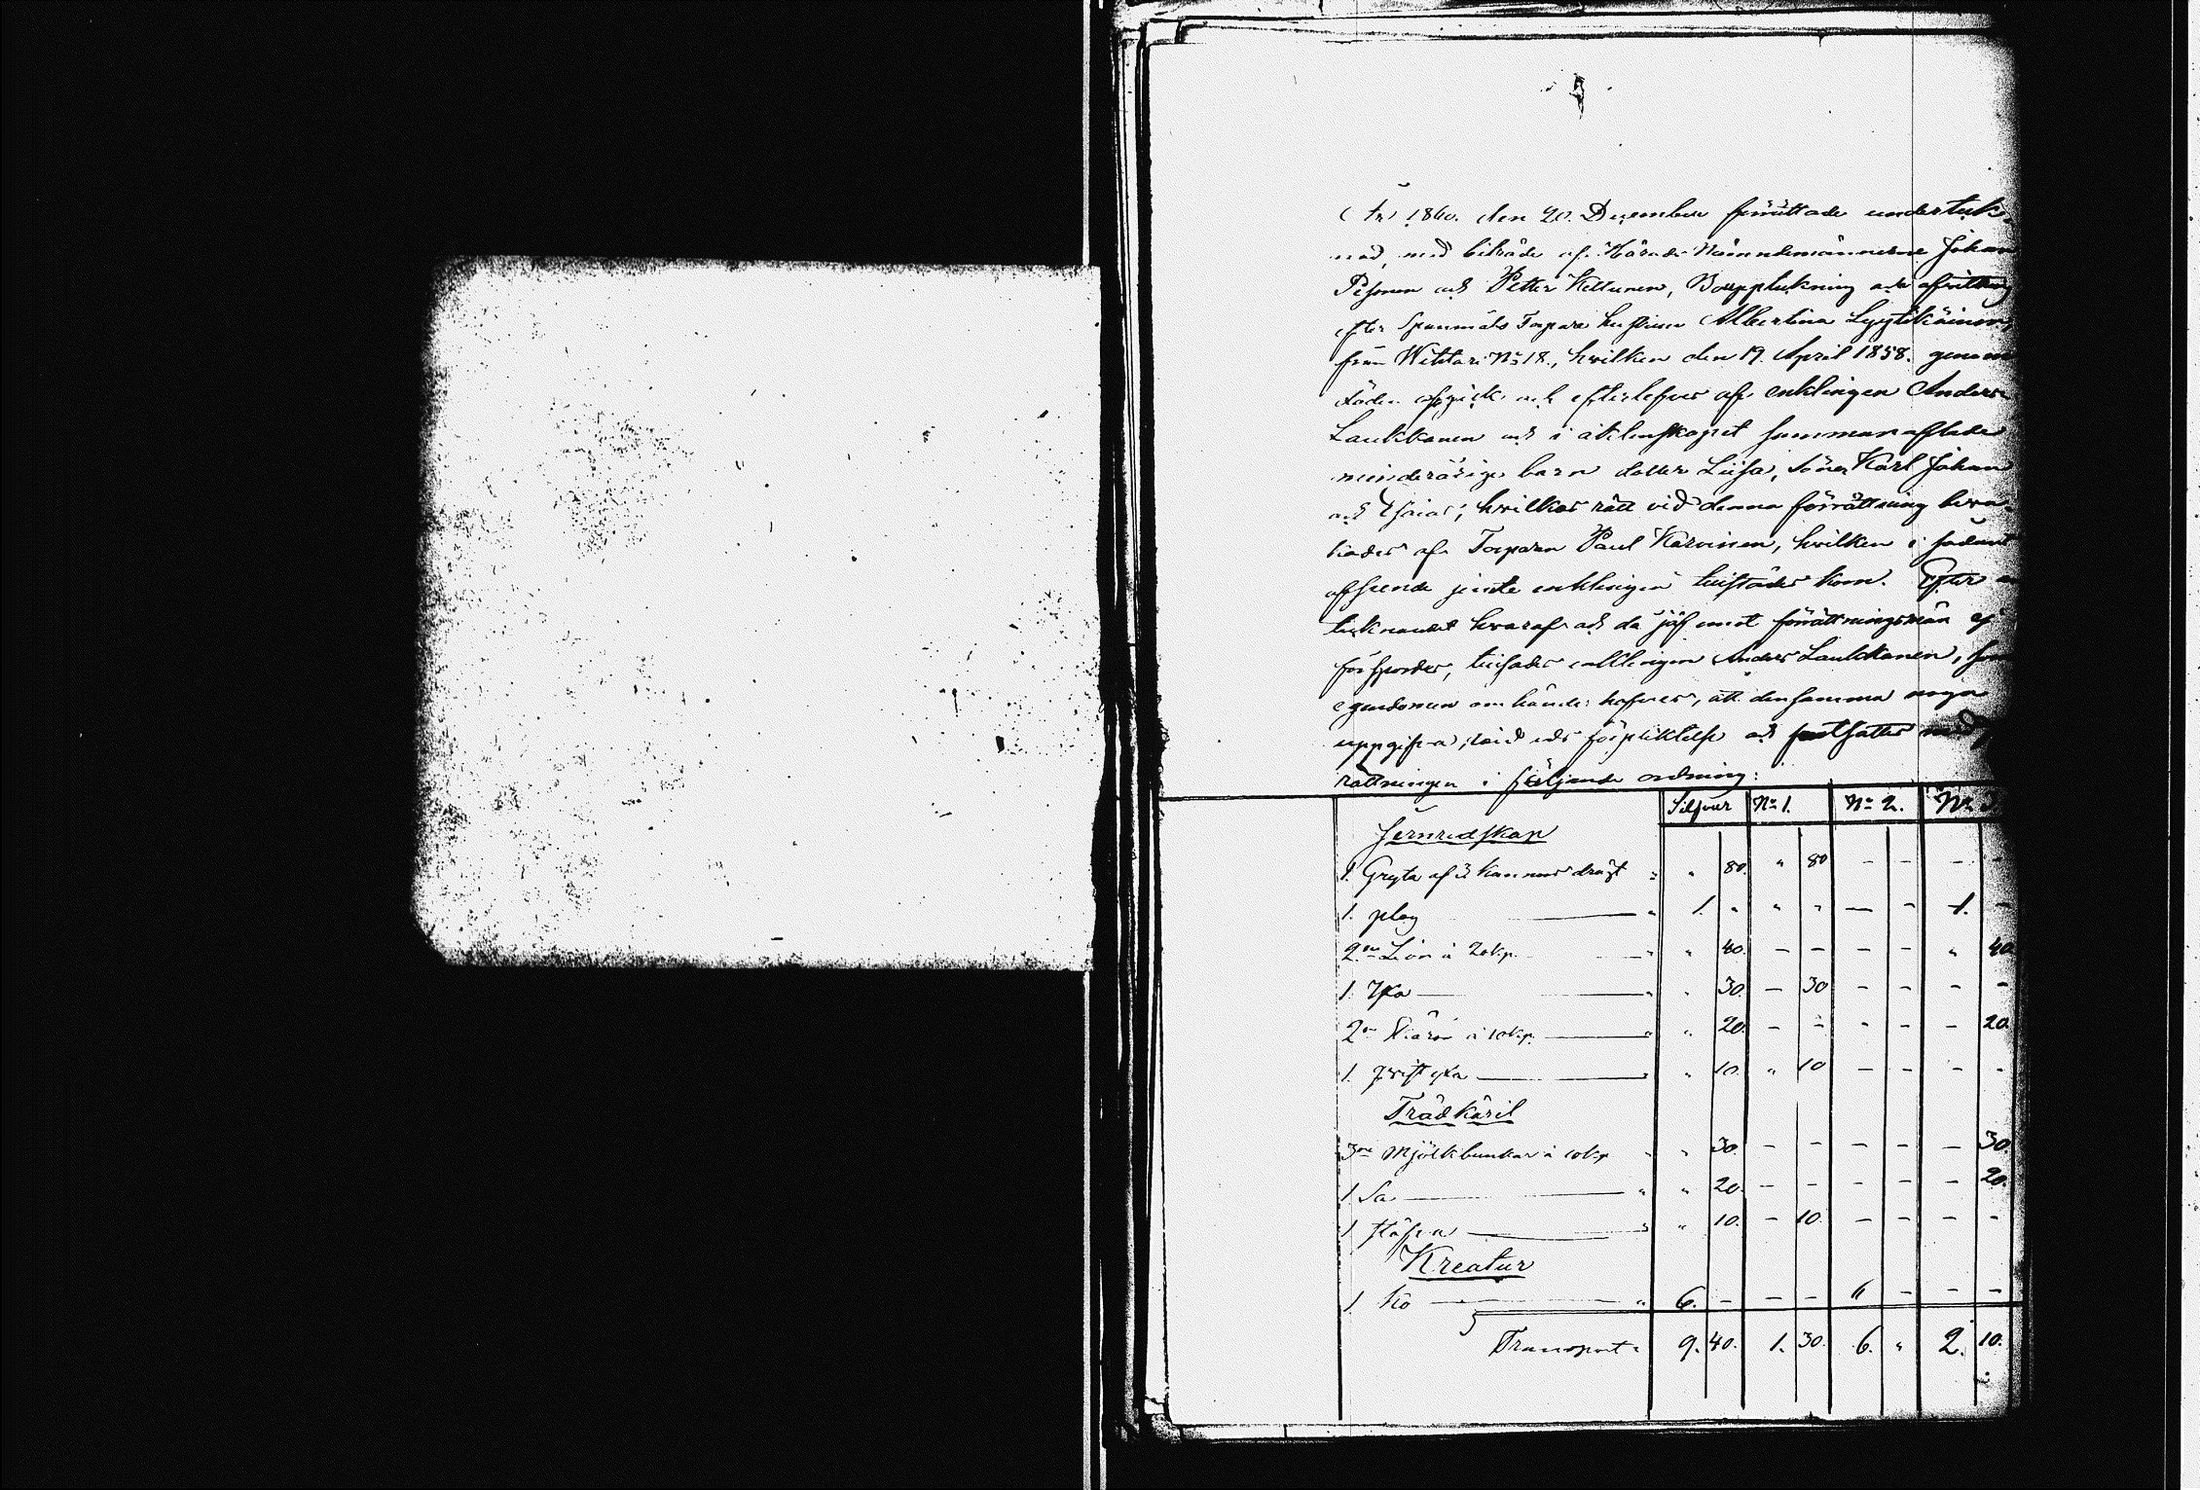 År 1860. den 20. December förrättade underteck-
nad, med biträde af Härads Nämndemännerne Johan
Pesonen och Petter Kettunen, Boupptekning och afvittring
efter Spanmåls Torpare hustrun Albertina Lyytikäinen,
från Wehtari No 18., hvilken den 19. April 1858. genom
döden afgick och efterlefves af enklingen Anders
Laukkanen och i äktenskapet sammanaflade
minderåriga barn dotter Liisa, söner Karl Johan
och Esaias; hvilkas rätt vid denna förrättning beva-
kades af Torparen Paul Karvinen, hvilken i sådant
afseende jemte enklingen tillstädes kom. Efter
tecknandet hvaraf och då jäf emot förrättningsmän ej
förspordes, tillsades enklingen Anders Laukkanen, som
egendomen om händer hafver, att densamma noga
uppgifva, vid eds förpliktelse och fortsattes med
rättningen i följande ordning:
Silfver No 1. No 2. No 3.
Jernredskap
1. Gryta af kannors drägt " 80. " 80 - - - -
1. plog 1. " " " - - 1. -
2ne Liar à 20 kp. " 40. - - - - " 40
1. Yxa " 30. - 30 - - - -
2ne Skäror à 10 kp. " 20. - - - - - 20
1. yxa " 10. " 10 - - - -
Trädkäril
3ne Mjölkbunkar à 10 kp " 30. - - - - - 30.
1 Så " 20. - - - - - 20.
1 " 10. - 10. - - - -
Kreatur
1 Ko 6. - - - 6 - - -
Transport 9. 40. 1. 30. 6. " 2. 10.